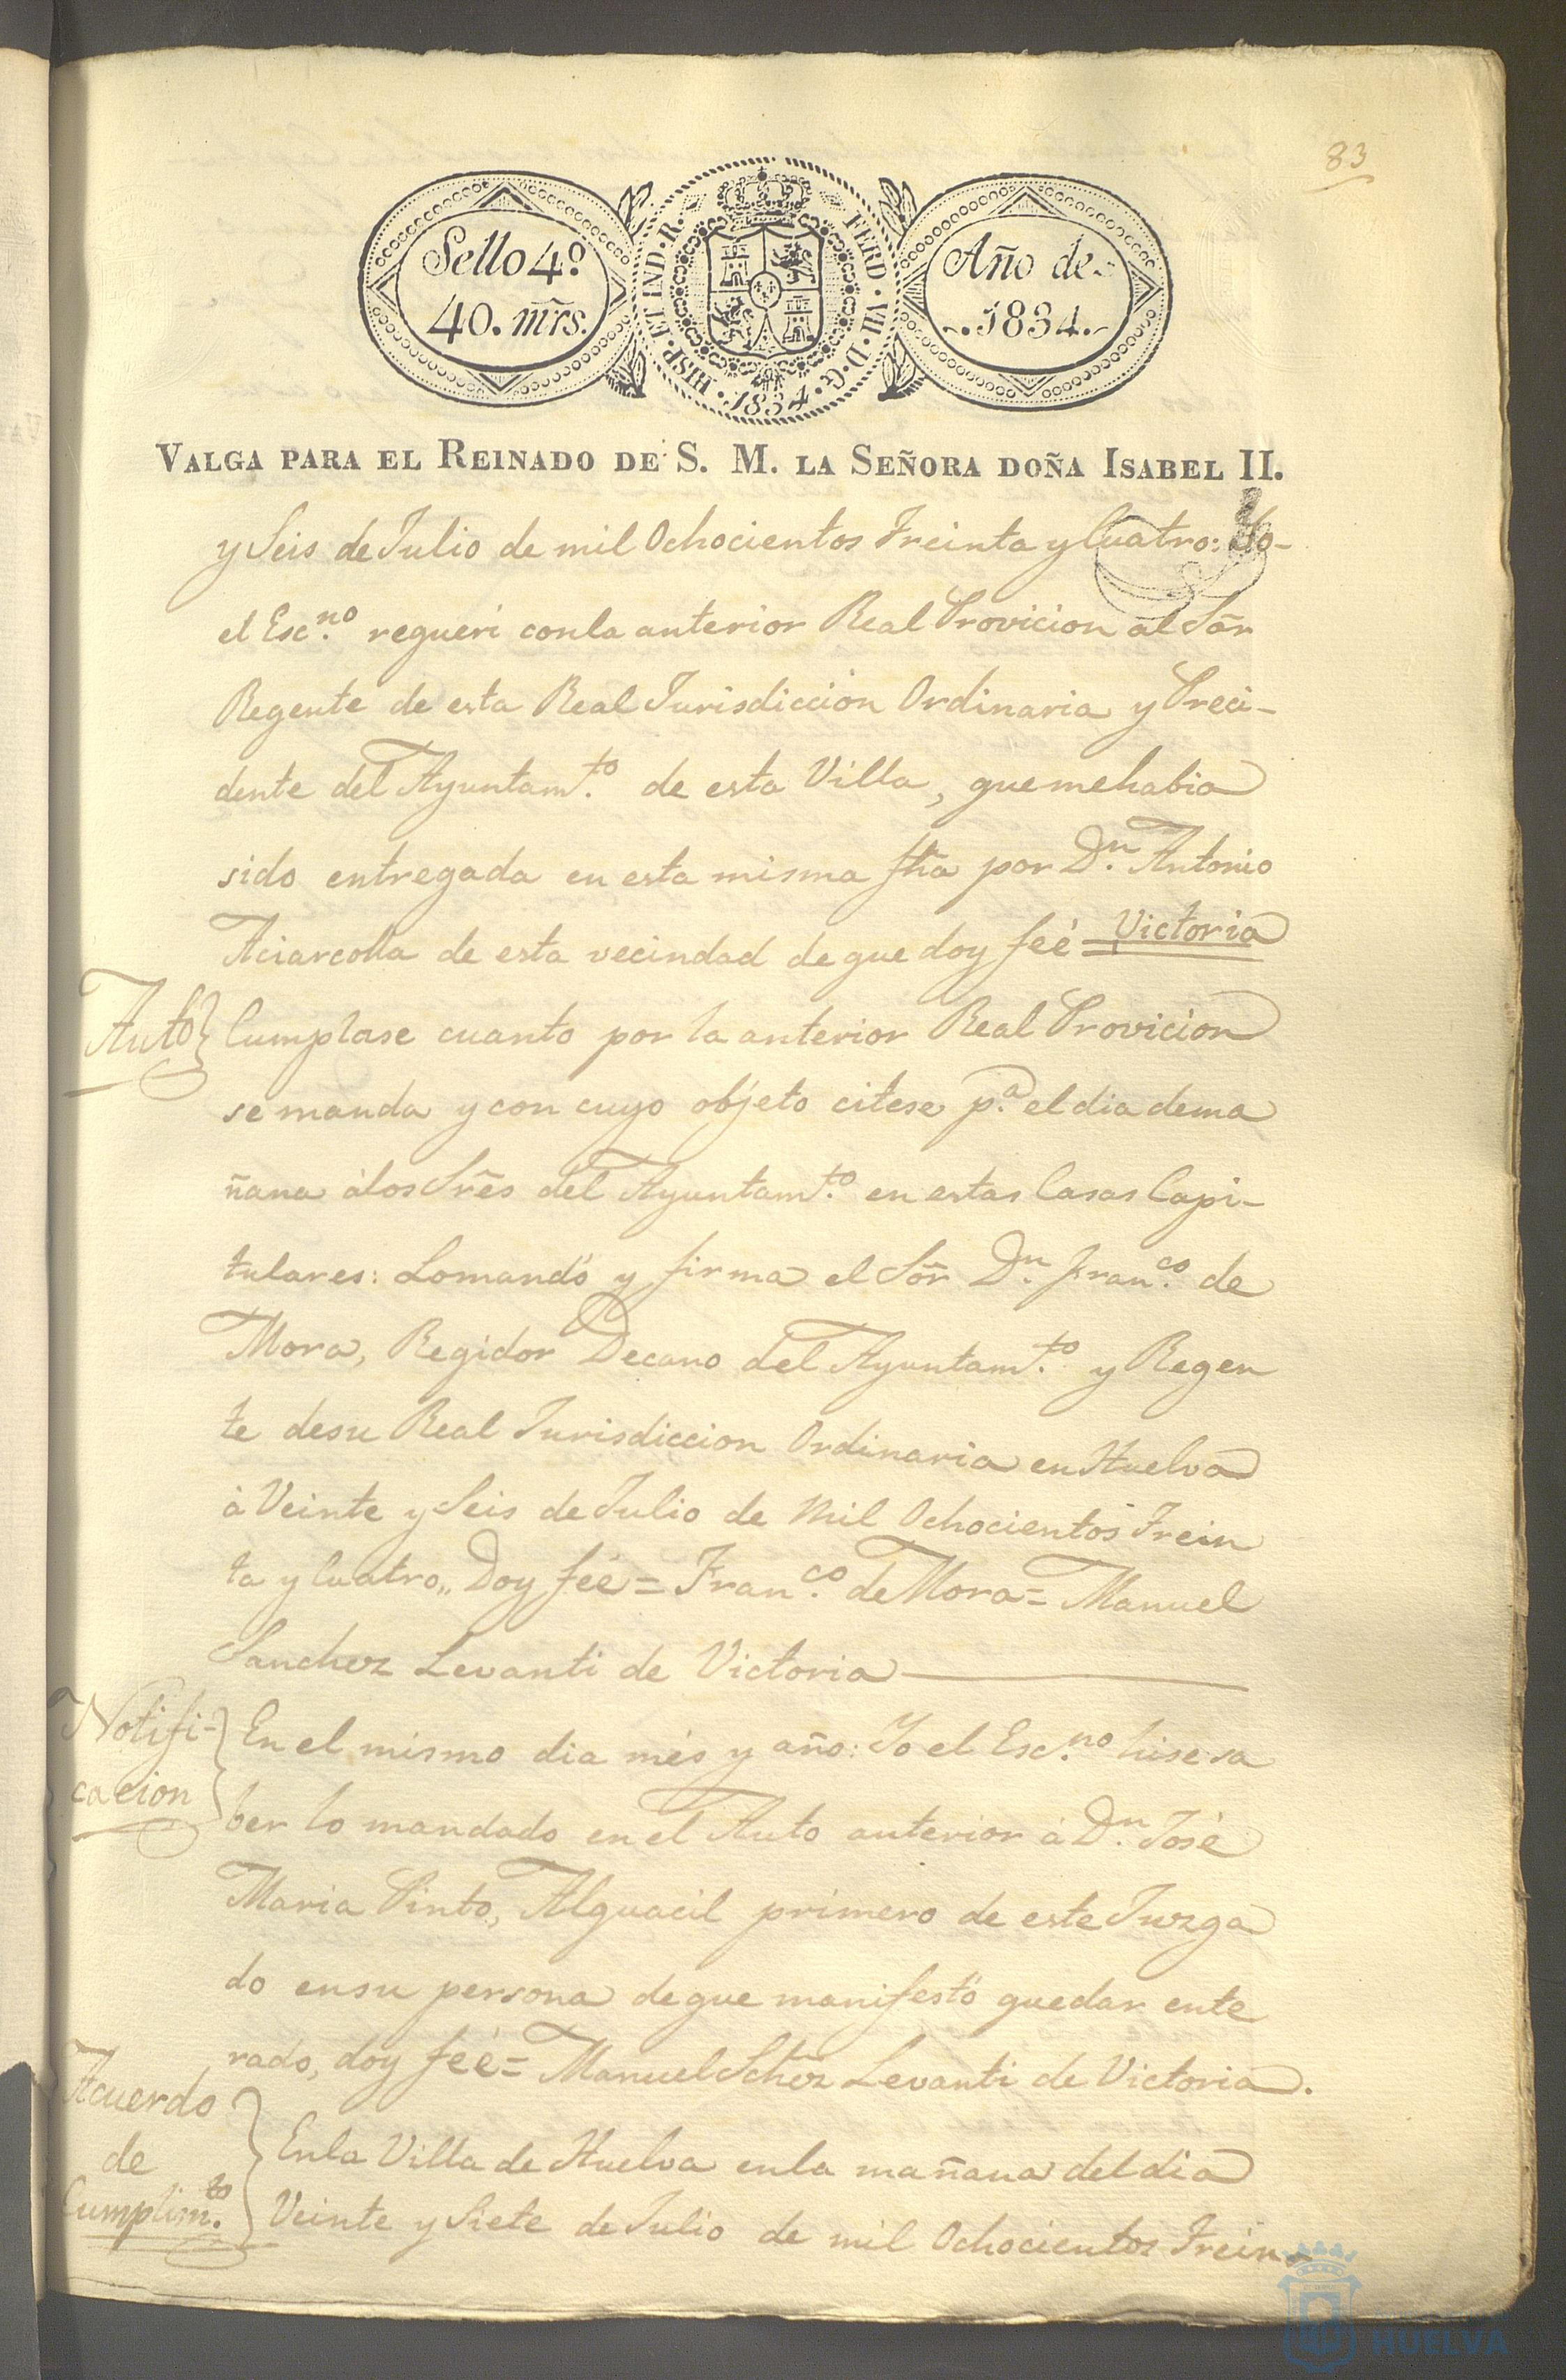 83
Sello 4º
40. mrs.
HISP. ET IND. R.
FERD. VII. D. G.
1834.
Año de
1834.
VALGA PARA EL REINADO DE S. M. LA SEÑORA DOÑA ISABEL II.
y Seis de Julio de mil Ochocientos Treinta y Cuatro: Yo
el Escno. requeri conla anterior Real Provicion al Sor
Regente de esta Real Jurisdiccion Ordinaria y Preci-
dente del Ayuntamto. de esta Villa, que mehabia
sido entregada en esta misma fha por Dn. Antonio
de esta vecindad de que doy feé = Victoria
Auto} Cumplase cuanto por la anterior Real Provicion
se manda y con cuyo objeto citese pa. el dia dema
ñana álos Sres del Ayuntamto. en estas Casas Capi-
tulares: Lomandó y firma el Sor Dn. Franco. de
Mora, Regidor Decano del Ayuntamto. y Regen
te desu Real Jurisdiccion Ordinaria en Huelva
á Veinte y Seis de Julio de Mil Ochocientos Trein
ta y Cuatro,, Doy feé = Franco. de Mora = Manuel
Sanchez Levanti de Victoria
Notifi-
cacion} En el mismo dia més y año: Yo el Escno. hise sa
ber lo mandado en el Auto anterior á Dn. José
Maria Pinto, Alguacil primero de este Juzga
do ensu persona deque manifestó quedar ente
rado, doy feé = Manuel Schez Levanti de Victoria.
Acuerdo
de
Cumplimto.} Enla Villa de Huelva enla mañana del dia
Veinte y Siete de Julio de mil Ochocientos Trein-
HUELVA